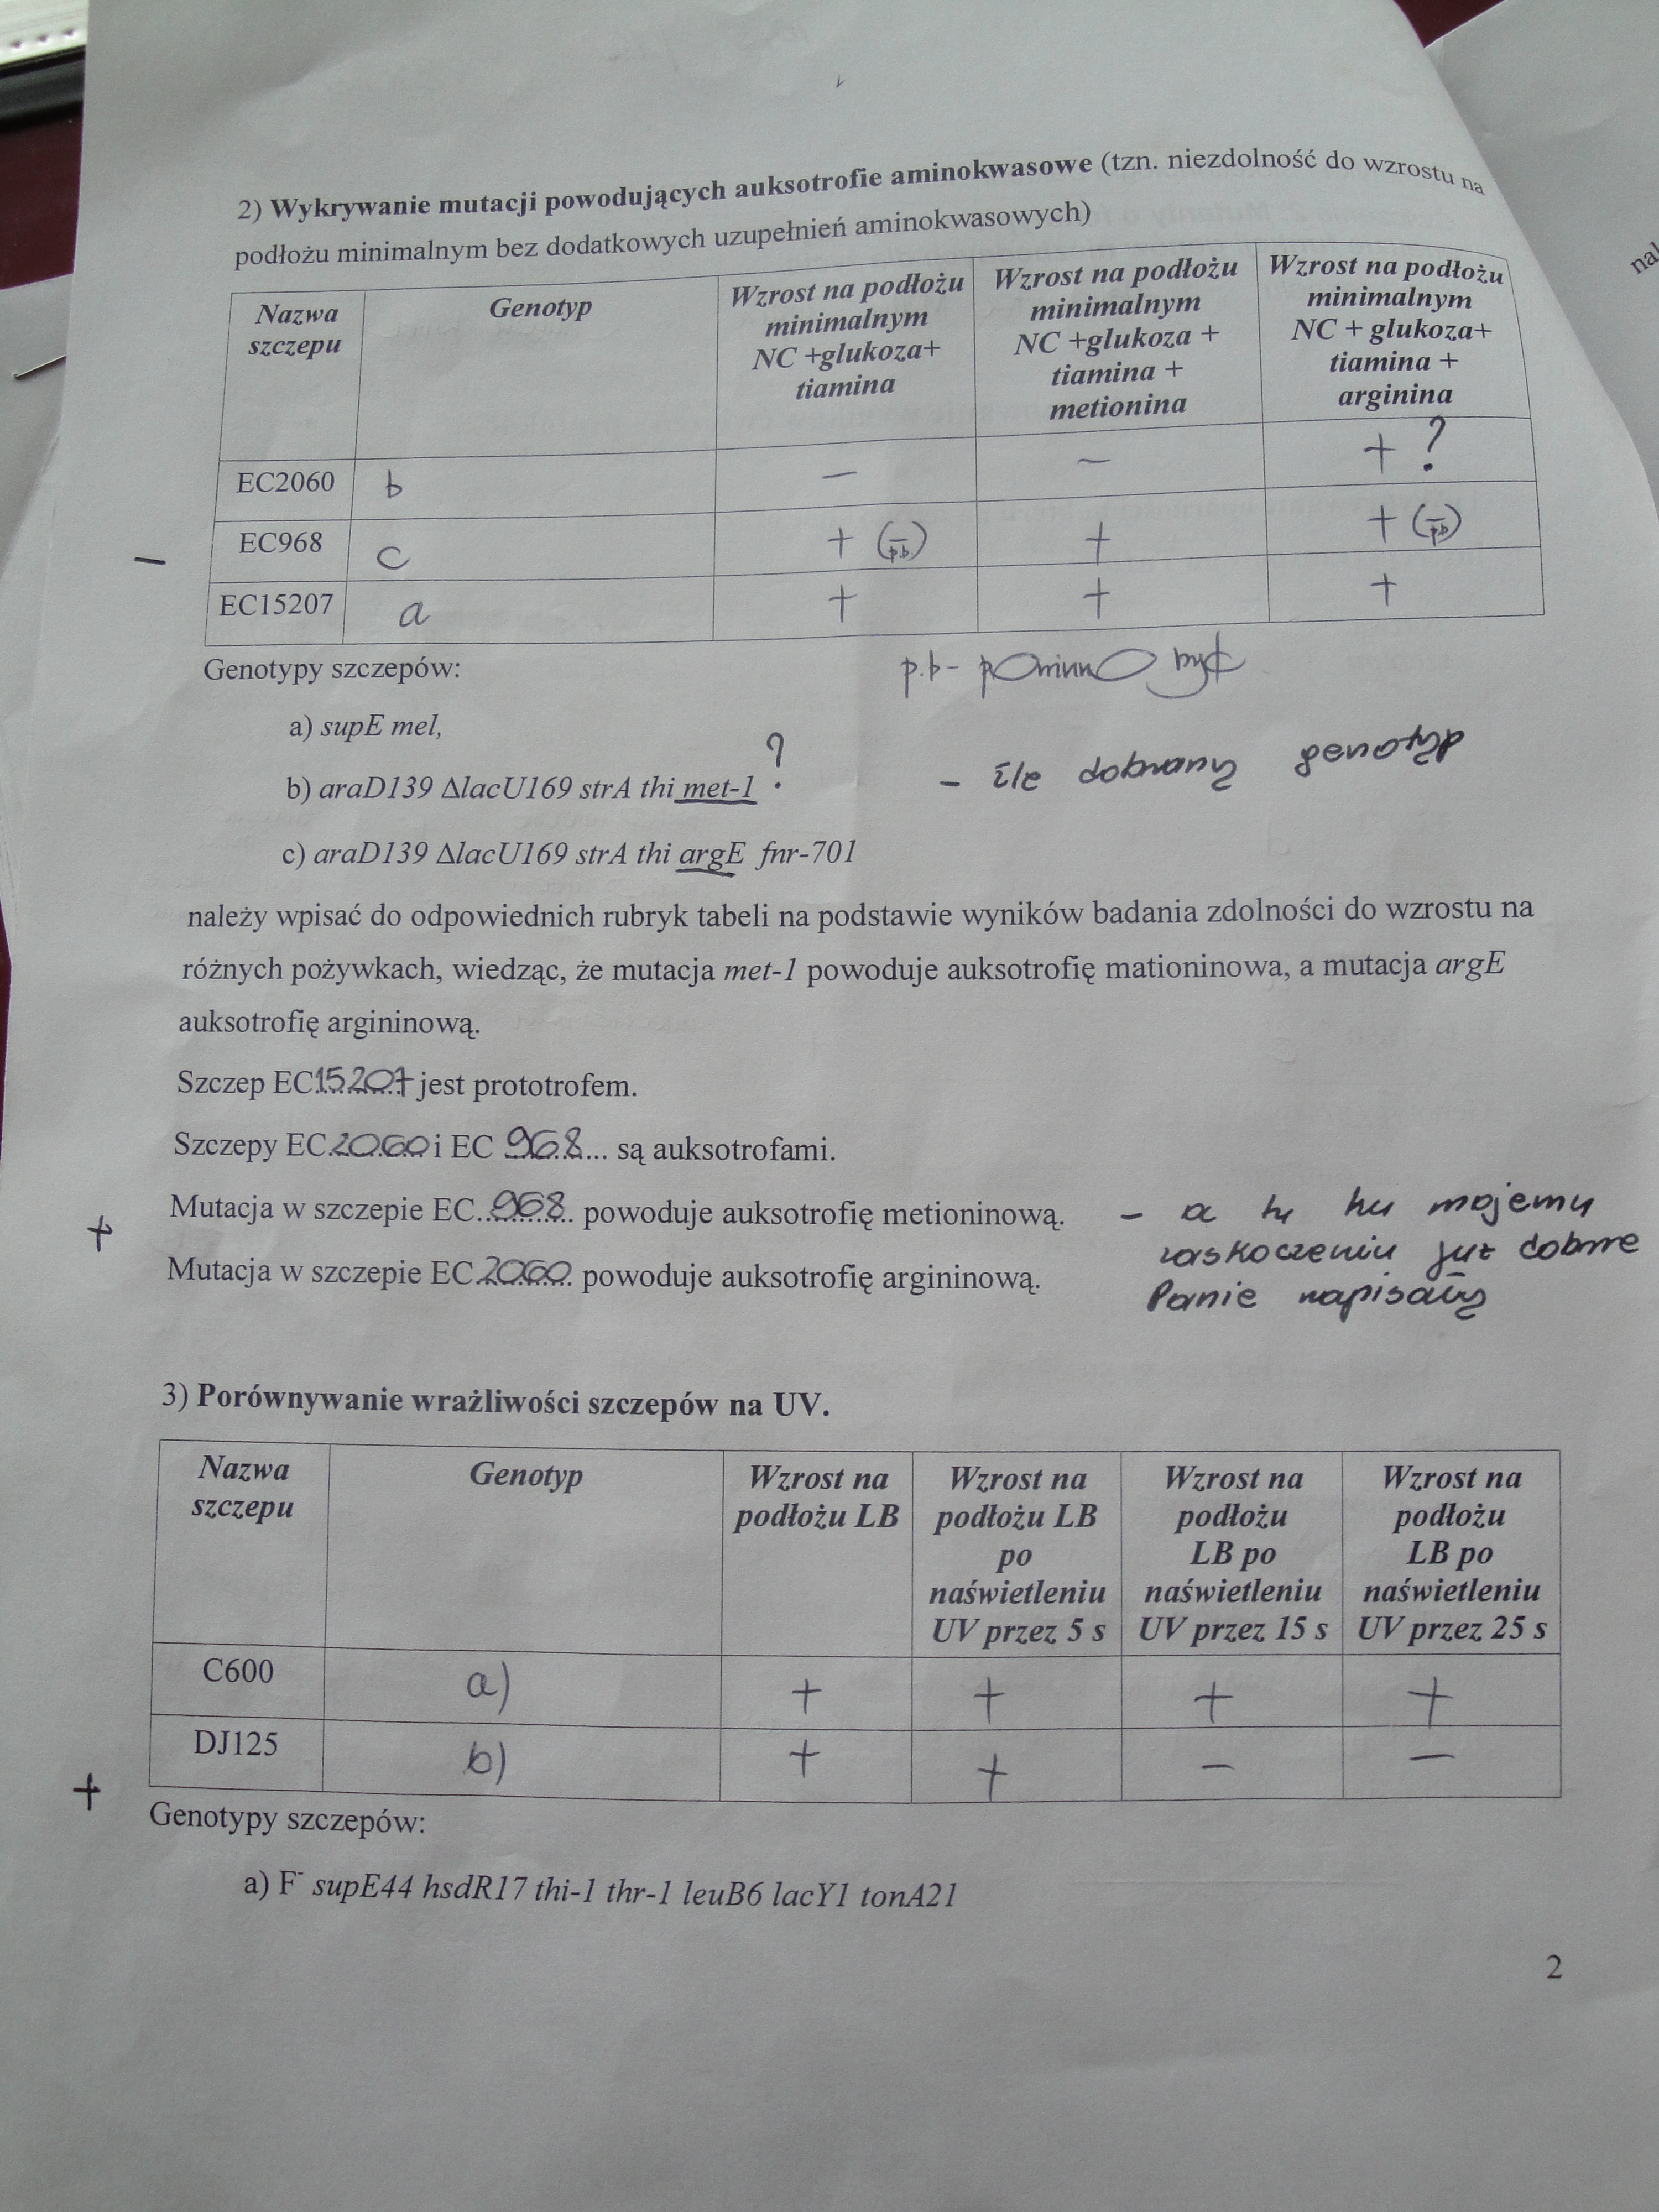 2) Wykrywanie mutacji powodujących auksotrofie aminokwasowe (tzn. niezdolność do wzrostu na
podłożu minimalnym bez dodatkowych uzupełnień aminokwasowych)
Nazwa szczepu
Genotyp
Wzrost na podłożu minimalnym NC +glukoza+ tiamina
Wzrost na podłożu minimalnym NC +glukoza + tiamina + metionina
Wzrost na podłożu minimalnym NC + glukoza+ tiamina + arginina
EC2060 b − − + ?
− EC968 c + (− p.b.) + + (− p.b)
EC15207 a + + +
Genotypy szczepów:
p.b - powinno być
a) supE mel,
b) araD139 ΔlacU169 strA thi met-1 ?
- źle dobrany genotyp
c) araD139 ΔlacU169 strA thi argE fnr-701
należy wpisać do odpowiednich rubryk tabeli na podstawie wyników badania zdolności do wzrostu na
różnych pożywkach, wiedząc, że mutacja met-1 powoduje auksotrofię mationinowa, a mutacja argE
auksotrofię argininową.
Szczep EC15207 jest prototrofem.
Szczepy EC2060 i EC 968... są auksotrofami.
Mutacja w szczepie EC..968.. powoduje auksotrofię metioninową.
+
Mutacja w szczepie EC.2060. powoduje auksotrofię argininową.
- a tu ku mojemu
zaskoczeniu już dobrze
Panie napisały
3) Porównywanie wrażliwości szczepów na UV.
Nazwa szczepu
Genotyp
Wzrost na podłożu LB
Wzrost na podłożu LB po naświetleniu UV przez 5 s
Wzrost na podłożu LB po naświetleniu UV przez 15 s
Wzrost na podłożu LB po naświetleniu UV przez 25 s
C600 a) + + + +
DJ125 b) + + − −
+
Genotypy szczepów:
a) F⁻ supE44 hsdR17 thi-1 thr-1 leuB6 lacY1 tonA21
2